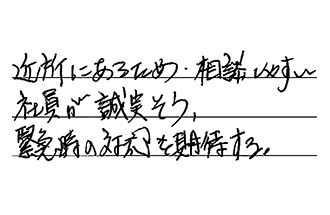 近所にあるため・相談しやすい
社員が誠実そう，
緊急時の対応を期待する。